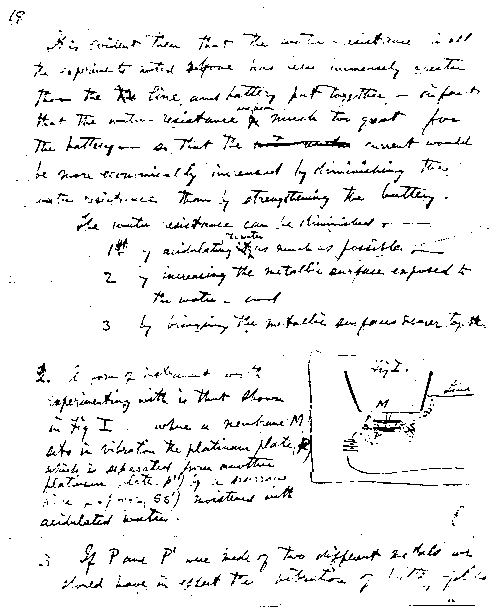 19
It is evident then that the water-resistance in all
the experiments noted before has been immensely greater
than the line and battery put together - in fact
that the water-resistance has been much too great for
the battery - so that the current would
be more economically increased by diminishing the
water resistance than by strengthening the battery.
The water resistance can be diminished -
1st by acidulating the water as much as possible.
2 by increasing the metallic surface exposed to
the water - and
3 by bringing the metallic surfaces nearer together.
2. A form of instrument worth
experimenting with is that shown
in Fig I. where a membrane M
sets in vibration the platinum plate, P,
which is separated from another
platinum plate P') by a narrow
moistened with
acidulated water.
Fig I.
M
Line
If P and P' were made of two different metals we
should have in effect the vibration of